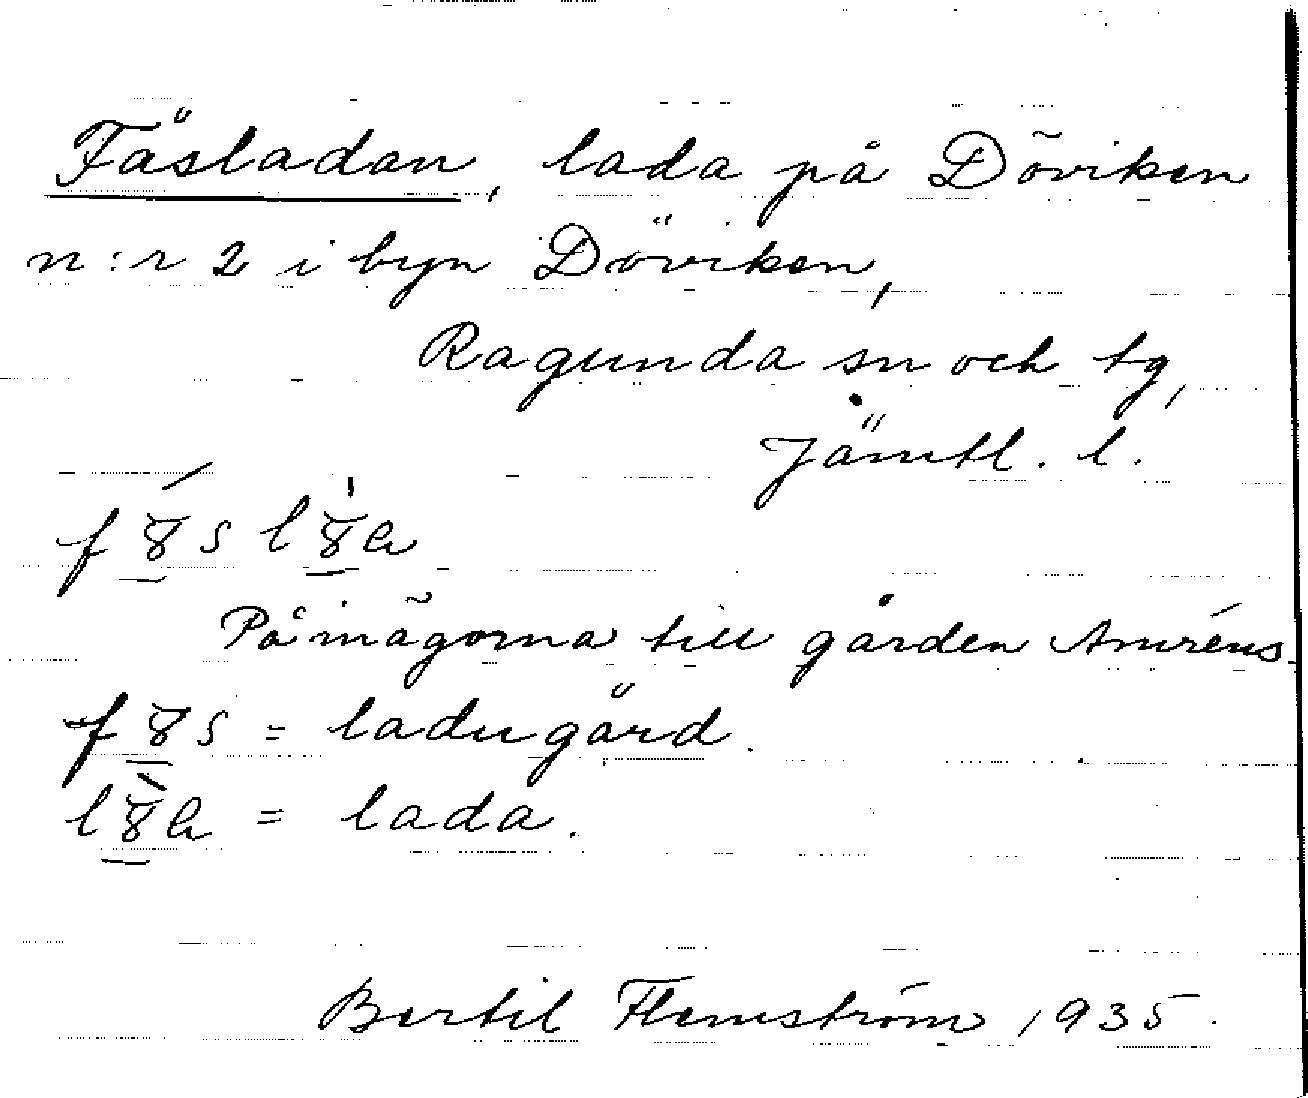 Fåsladan, lada på Döviken
n:r 2 i byn Döviken,
Ragunda sn och tg,
Jämtl. l.
På inägorna till gården Amréns
= ladugård.
= lada.
Bertil Flemström 1935.